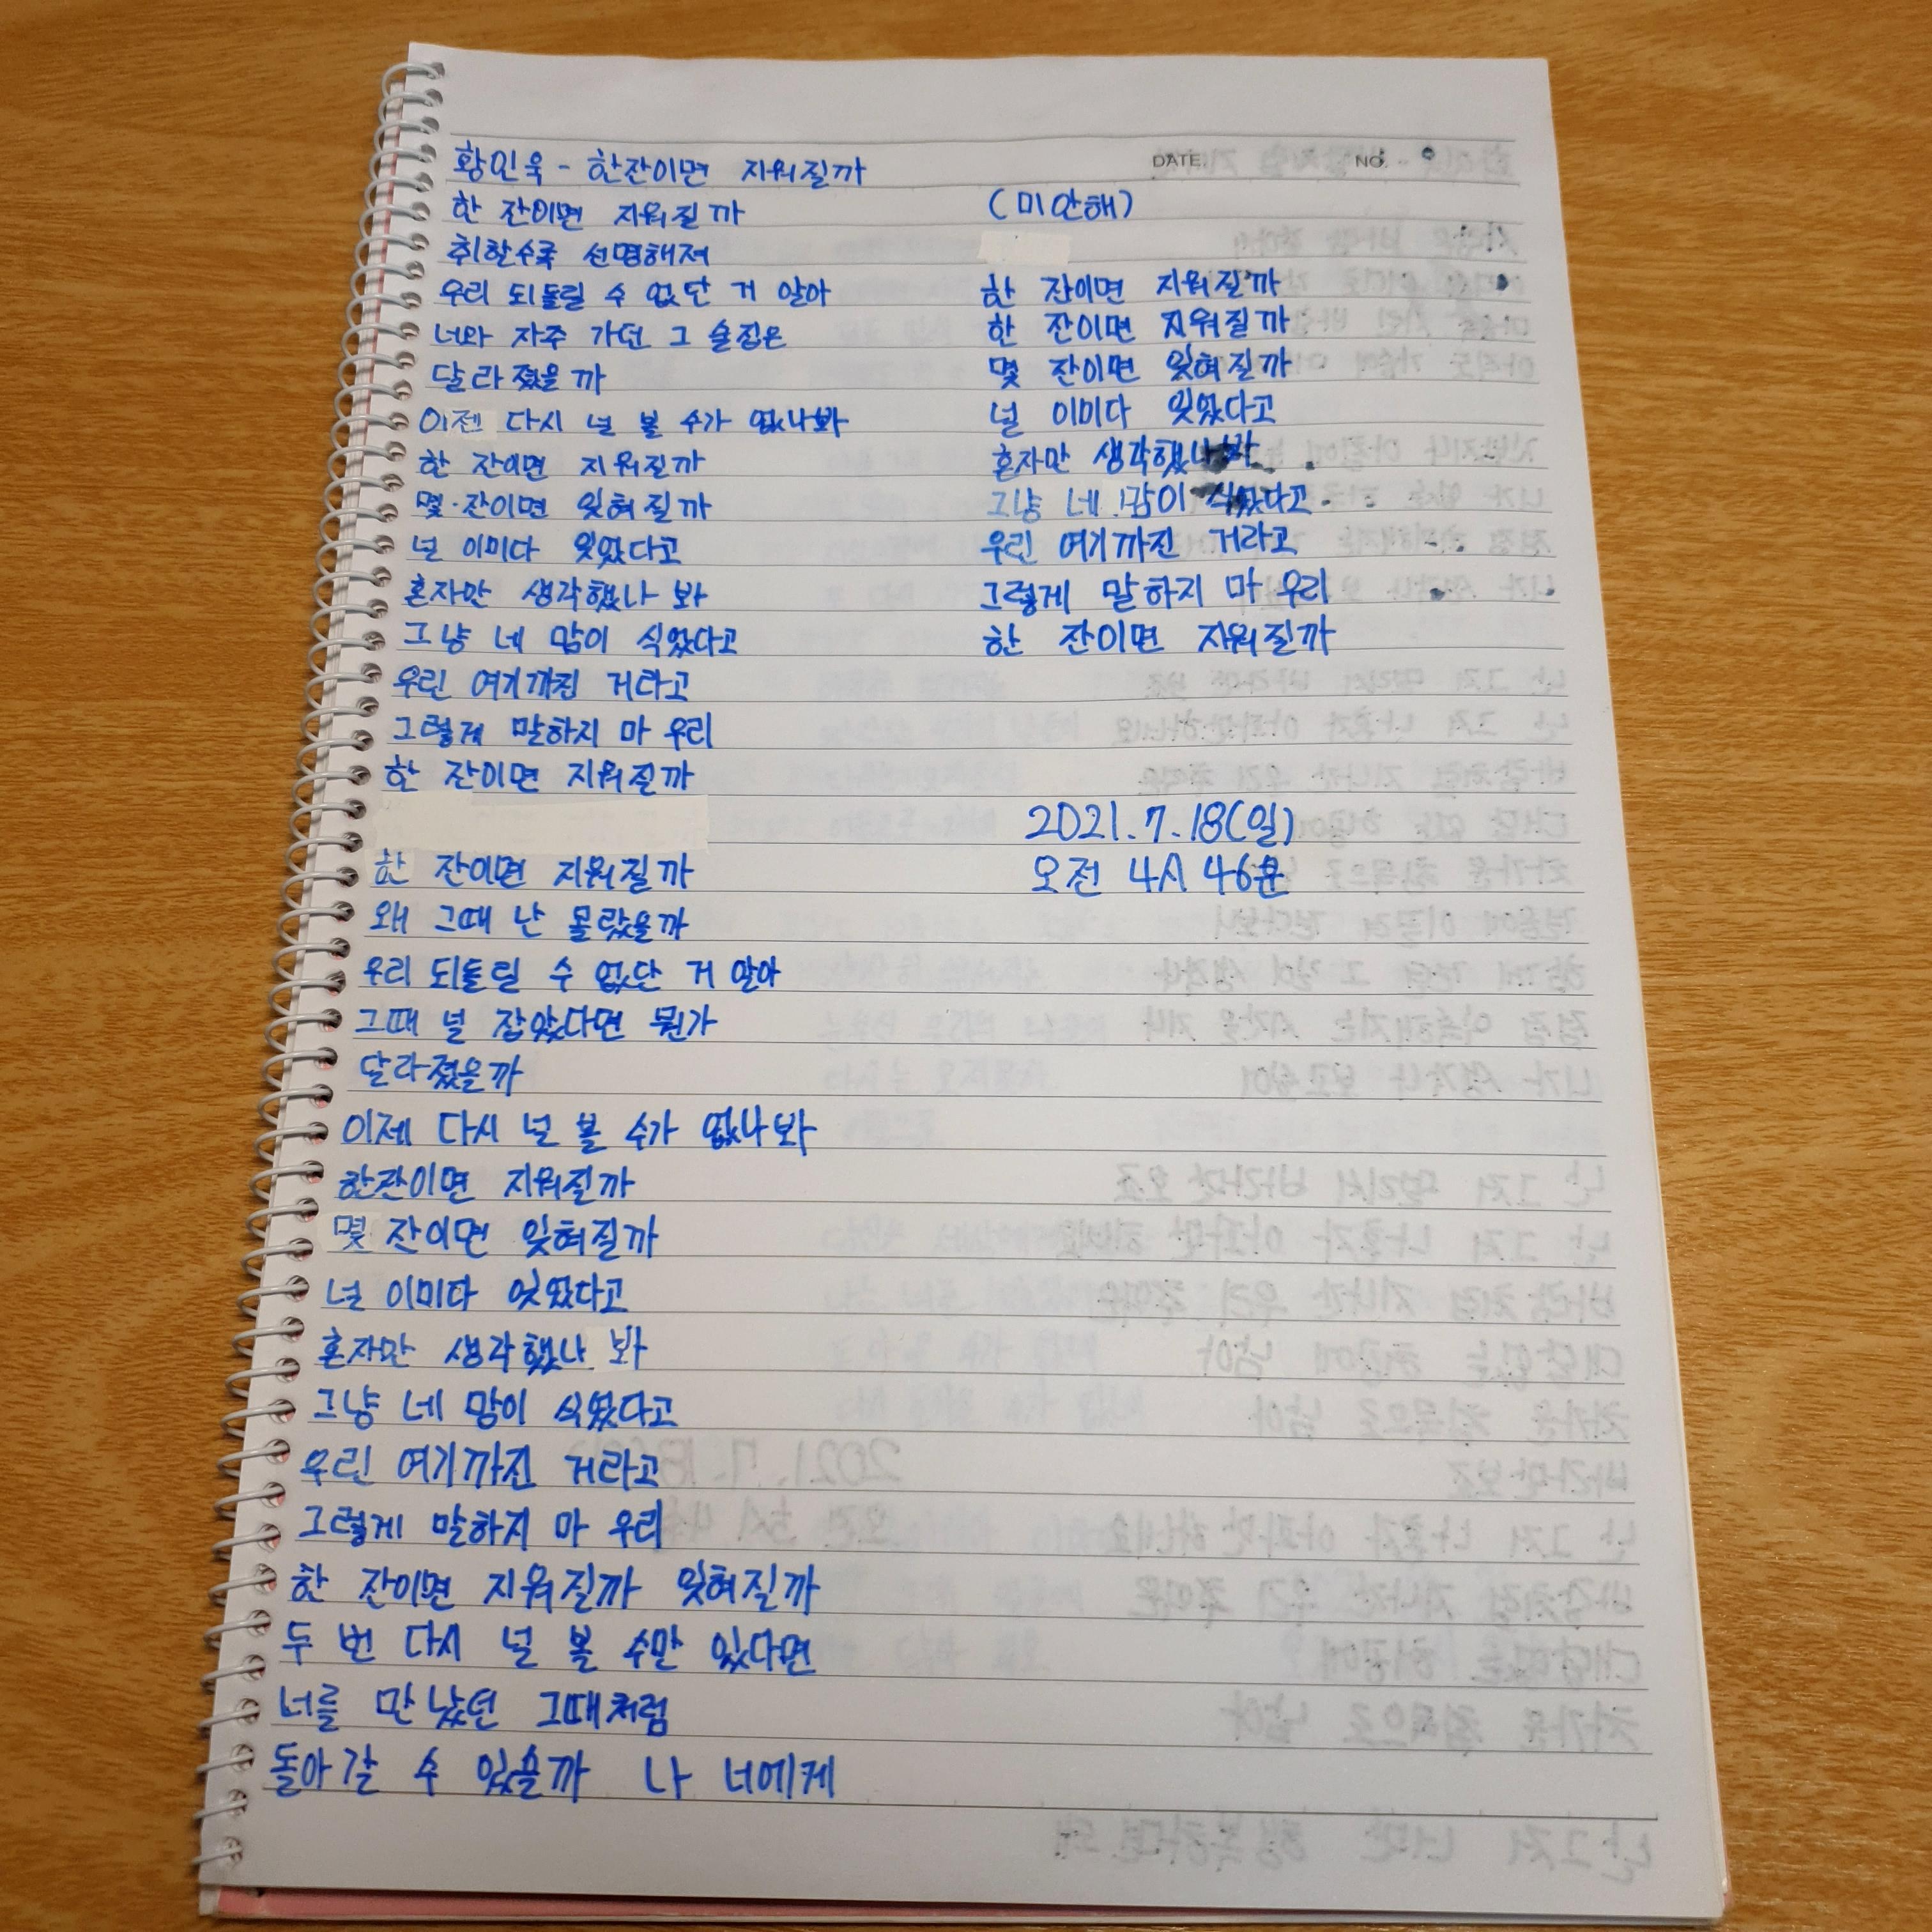 황인욱 - 한잔이면 지워질까
한 잔이면 지워질까
취할수록 선명해져
우리 되돌릴 수 없단 거 알아
너와 자주 가던 그 술집은
달라졌을까
이젠 다시 널 볼 수가 없나봐
한 잔이면 지워질까
몇 잔이면 잊혀질까
넌 이미다 잊었다고
혼자만 생각했나 봐
그냥 네 맘이 식었다고
우린 여기까진 거라고
그렇게 말하지 마 우리
한 잔이면 지워질까
한 잔이면 지워질까
왜 그때 난 몰랐을까
우리 되돌릴 수 없단 거 알아
그때 널 잡았다면 뭔가
달라졌을까
이제 다시 널 볼 수가 없나봐
한잔이면 지워질까
몇 잔이면 잊혀질까
넌 이미다 잊었다고
혼자만 생각했나 봐
그냥 네 맘이 식었다고
우린 여기까진 거라고
그렇게 말하지 마 우리
한 잔이면 지워질까 잊혀질까
두 번 다시 널 볼 수만 있다면
너를 만났던 그때처럼
돌아갈 수 있을까 나 너에게
DATE. NO.
(미안해)
한 잔이면 지워질까
한 잔이면 지워질까
몇 잔이면 잊혀질까
널 이미다 잊었다고
혼자만 생각했나 봐
그냥 네 맘이 식었다고
우린 여기까진 거라고
그렇게 말하지 마 우리
한 잔이면 지워질까
2021.7.18(일)
오전 4시 46분